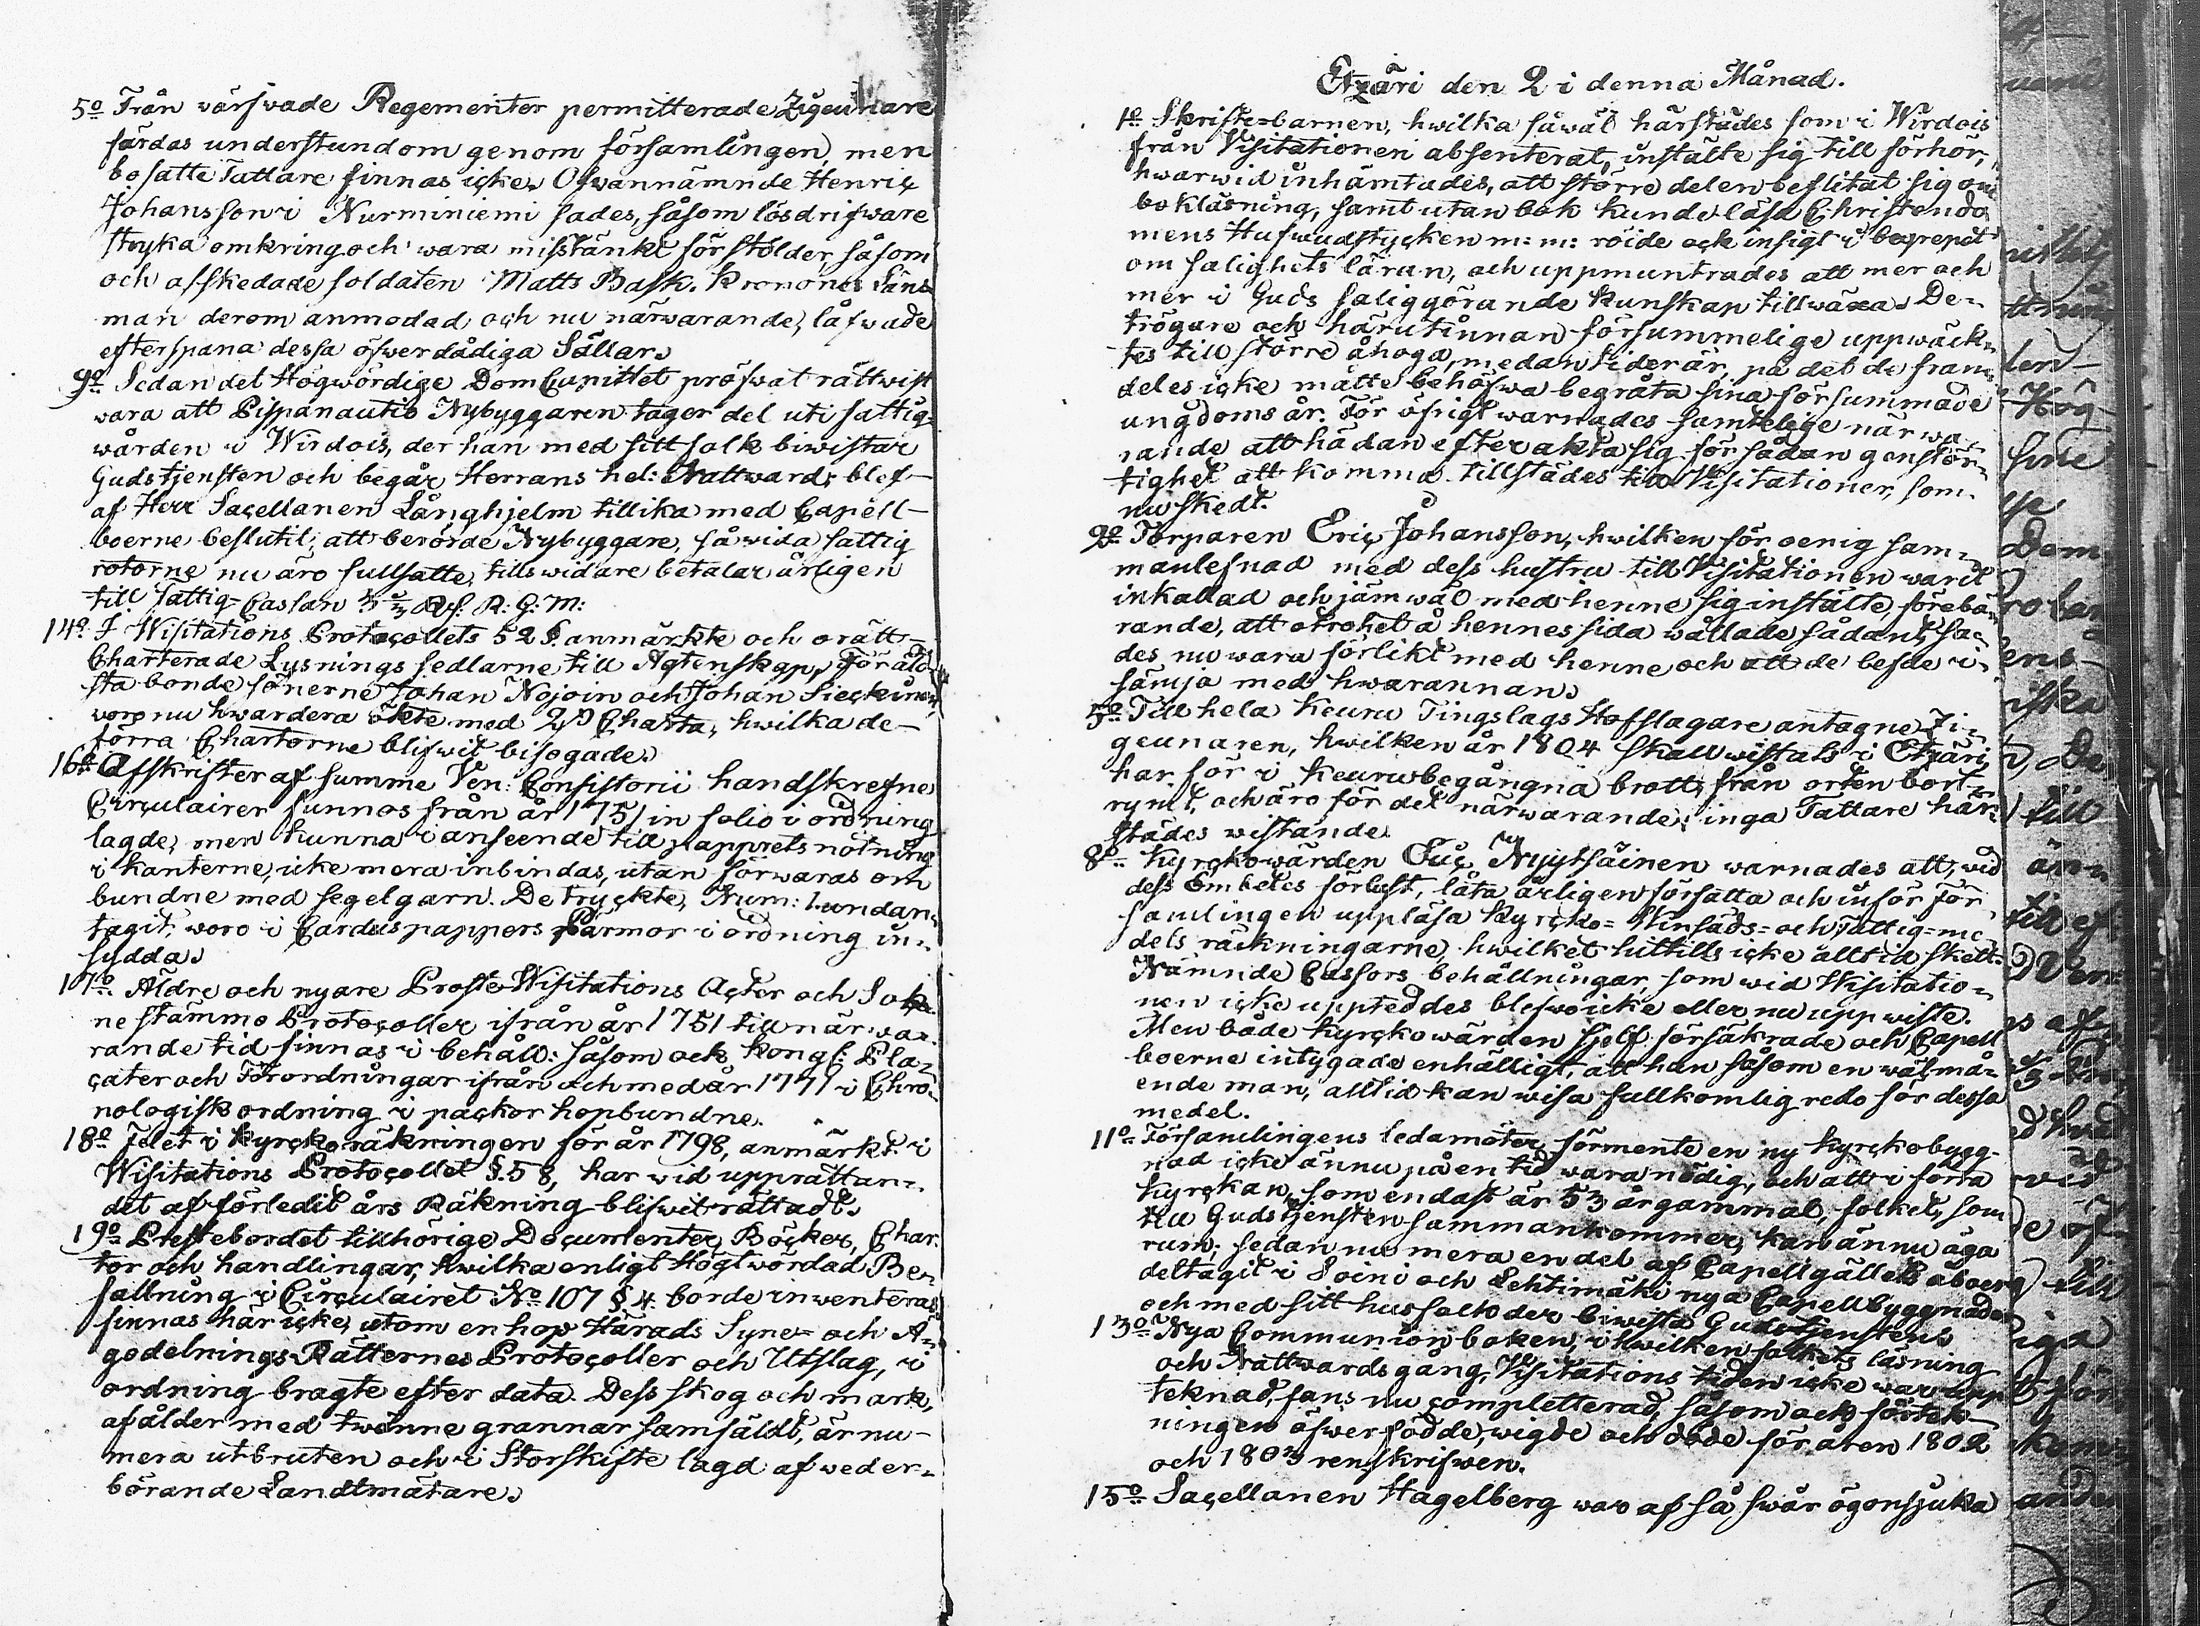 5o Från värfvade Regementer permitterade Zigeunare
färdas understundom genom församlingen, men
bosatte Tattare finnas icke. Ofwannämnde Henric
Johansson i Nurminiemi sades, såsom lösdrifware
stryka omkring och wara misstänkt för stölder, såsom
och afskedade soldaten Matts Bask. Kronones Läns-
man derom anmodad och nu närwarande, låfwade
efterspana dessa öfwerdådiga Sällar.
9o Sedan det Högwördige DomCapitlet pröfwat rättwist
wara att Pispanautio Nybyggaren tager del uti fattig-
wården i Wirdois, der han med sitt folk biwistar
Gudstjensten och begår Herrans hel: Nattward; blef
af Herr Sacellanen Långhjelm tillika med Capell-
boerne beslutit, att berörde Nybyggare, så wida fattig
rotorne nu äro fullsatte, tills widare betalar årligen
till fattig-Cassan R: G: M:
14o I Wisitations Protocollets 52 §. anmärkte och orätt
Charterade Lysnings sedlarne till Ägtenskap, för
sta bonde sönerne Johan Nojoin och Johan
woro nu hwardera ökte med Charta, hwilka de
förra Chartorne blifwit bifogade.
16o Afskrifter af samme Ven: Consistorii handskrefne
Circulairer funnos från år 1751 in folio i ordning
lagde, men kunna i anseende till papprets nötning
i kanterne, icke mera inbindas, utan förwaras om
bundne med segelgarn. De tryckte, Num: 1. undan-
tagit, woro i Carduspappers Pärmor i ordning in-
sydda.
17o Äldre och nyare Prosts Wisitations Acter och Sok
ne stämmo Protocoller ifrån år 1751 till när wa-
rande tid finnas i behåll: såsom ock Kongl: Pla-
cater och Förordningar ifrån och med år 1771 i Chro-
nologisk ordning i packor hopbundne.
18o Felet i Kyrckoräkningen för år 1798, anmärkt i
Wisitations Protocollet §. 58, har wid upprättan-
det af förledit års Räkning blifwit rättadt.
19o Prestebordet tillhörige Documenter, Böcker, Char
tor och handlingar, hwilka enligt Högtwördad Be-
fallning i Circulairet No 107 § 4. borde inwenteras
finnas här icke, utom en hop Härads Syne- och Ä-
godelnings Rätternes Protocoller och Utslag, i
ordning bragte efter data. Dess skog och mark,
af ålder med twänne grannar samfäldt, är nu-
mera utbruten och i Storskifte lagd af weder-
börande Landtmätare.
Etzäri den 2 i denna Månad.
1o Skrifte-barnen, hwilka såwäl härstädes som i Wirdois
från Visitationen absenterat, instälte sig till förhör,
hwarwid inhämtades, att större delen beflitat sig om
bokläsning, samt utan bok kunde läsa Christendo
mens Hufwudstycken m: m: röide ock insigt i begrepet
om salighets läran, och uppmuntrades att mer och
mer i Guds saliggörande kunskap tillwäxa. De
trögare och härutinnan försummelige uppwäck-
tes till större åhoga, medan tider är, på det de fram
deles icke måtte behöfwa begråta sina försummade
ungdoms år. För öfrigt warnades samtelige närwa-
rande att hädanefter akta sig för sådan genstör-
tighet att komma tillstädes till Visitationer, som
nu skedt.
2o Torparen Eric Johansson, hwilken för oenig sam-
manlefnad med dess hustru till Visitationen warit
inkallad och jämwäl med henne sig instälte, förebä-
rande, att otrohet å hennes sida wållade sådant, sa-
des nu wara förlikt med henne och att de lefde i
sämja med hwarannan.
5o Till hela Keuru Tingslags Hofslagare antagne Zi-
geunaren, hwilken år 1804 skall wistats i Etzäri,
har för i Keuru begångna brott, från orten bort-
rymt, och äro för det närwarande inga Tattare här-
städes wistande.
8o Kyrckowärden Nyytsäinen warnades att, wid
dess Embetes förlust, låta årligen författa och inför För
samlingen uppläsa Kyrcko= Winsäds= och Fattig=me-
dels räckningarne, hwilket hittills icke alltid skett.
Nämnde Cassors behållningar, som wid Wisitatio-
nen icke uppteddes blefwo icke eller nu uppwiste.
Men både Kyrckowärden sjelf försäkrade och Capell
boerne intygade enhälligt, att han såsom en wälmå-
ende man, alltid kan wisa fullkomlig redo för dessa
medel.
11o Församlingens ledamöter förmente en ny Kyrckobygg-
nad icke ännu på en tid wara nödig, och att i förra
Kyrckan, som endast är 53 år gammal, folket, som
till Gudstjensten sammankommer, kan ännu äga
rum; sedan nu mera en del af Capellgällets åboer
deltagit i Soini och Lehtimäki nya Capellbyggnader
och med sitt husfolk der biwista Gudstjensten.
13o Nya Communion boken, i hwilken folkets läsning
och Nattwardsgång, Visitations tiden icke war upp
teknad, fans nu completterad, såsom ock förtek-
ningen öfwer födde, wigde och döde för åren 1802
och 1803 renskrifwen.
15o Sacellanen Hagelberg war af så swår ögonsjuka